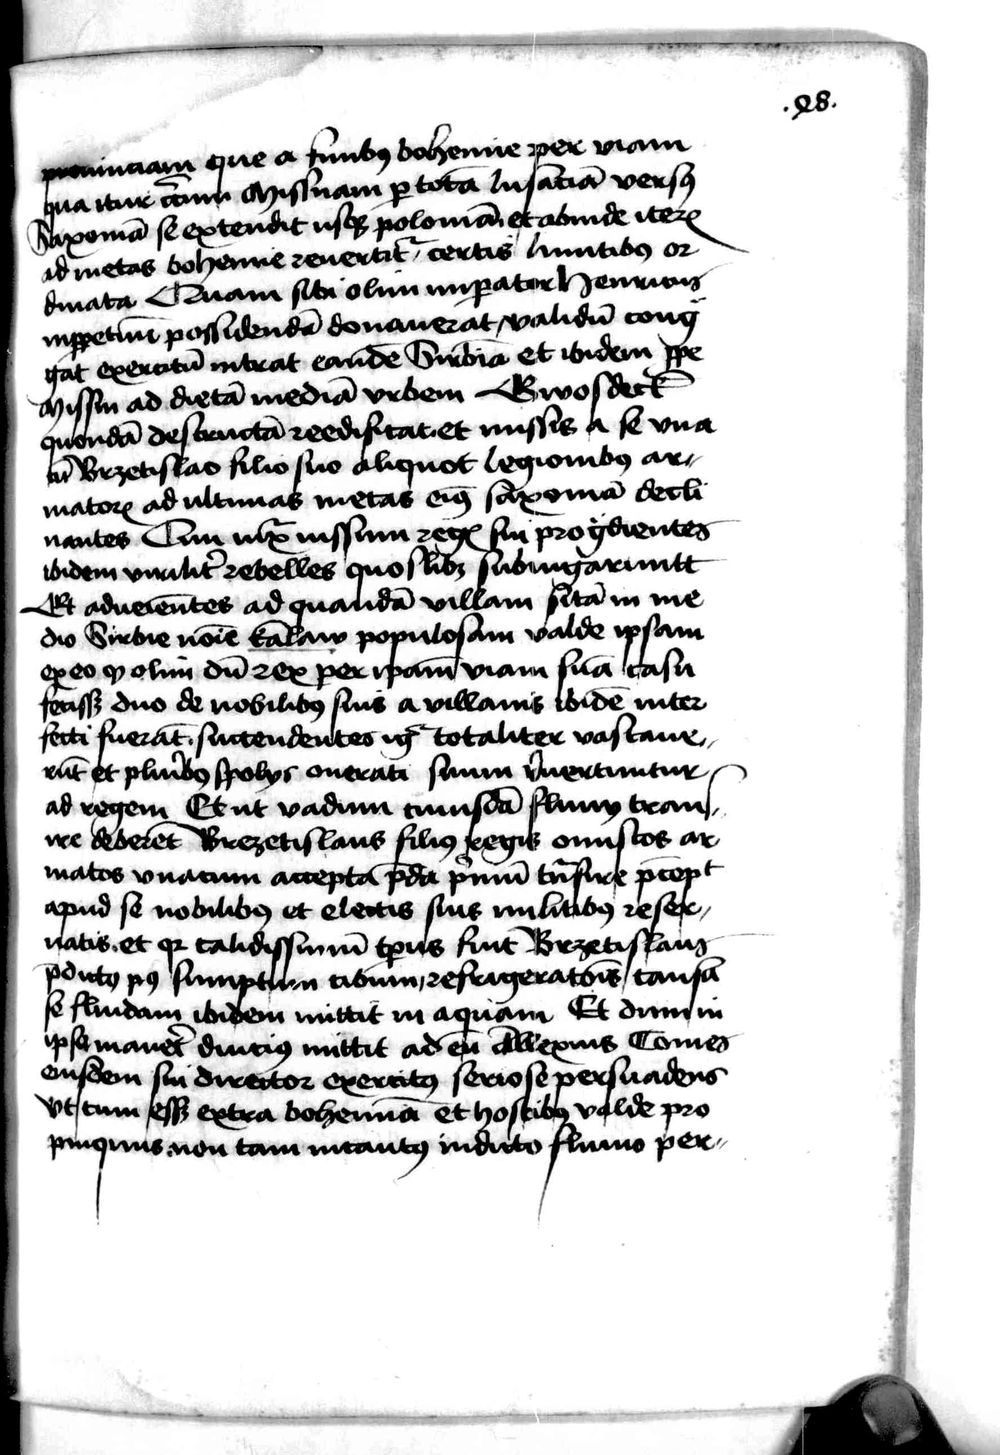 .28.
prouinciam que a finibꝫ bohemie per viam
qua itur c̃tum Missnam ꝑ totā lusaciā versꝫ
Saxoniā se extendit usqꝫ poloniā et abinde iteꝝ
ad metas bohemie reuertit᷑ certis limitibꝫ or
dinata Quam sibi olim impator Henricus
inppetuū possidendā donauerat validū cong̃
gat exercitū intrat eandē Sirbiā et ibidem ꝓpe
Missin ad dietā mediā vrbem Gwosdeck
quondā destructā reedificat et missis a se vna
cū Brzetislao filio suo aliquot legionibꝫ ar
matoꝝ ad ultimas metas eiꝰ saxoniā decli
nantes Cum iux̄ iussum regꝭ sui prog̃dientes
ibidem virilit᷑ rebelles quoslibꝫ subiugaruntt
Et aduenientes ad quandā villam sitā in me
dio Sirbie noīe kalaw populosam valde ipsam
ex eo qꝫ olim dū rex per ipam viam suā casu
fecissꝫ duo de nobilibꝫ suis a villanis ibidē inter
fecti fuerāt. succendentes ig᷑ totaliter vastaue
rūt et pluribꝫ spolijs onerati suum reuertuntur
ad regem Et ut vadum cuiusdā fluuij trans
ire deberēt Brezetislaus filiꝰ regis onustos ar
matos vnacum accepta p̄da primū trāsire p̄cepit
apud se nobilibꝫ et electis suis militibꝫ reser
uatis. et qꝛ calidissimū tp̄us fuit Brzetislaus
p̄dictꝰ pꝰ sumptum cibum refrigeratōis causā
se fluidam ibidem mittit in aquam Et dum in
ipsa maneret diuciꝰ mittit ad eū Allexius Comes
eiusdem sui director exercitꝰ seriose persuadens
vt cum essꝫ extra bohemiā et hostibꝫ valde pro
pinquus non tam incautꝰ in dicto fluuio per